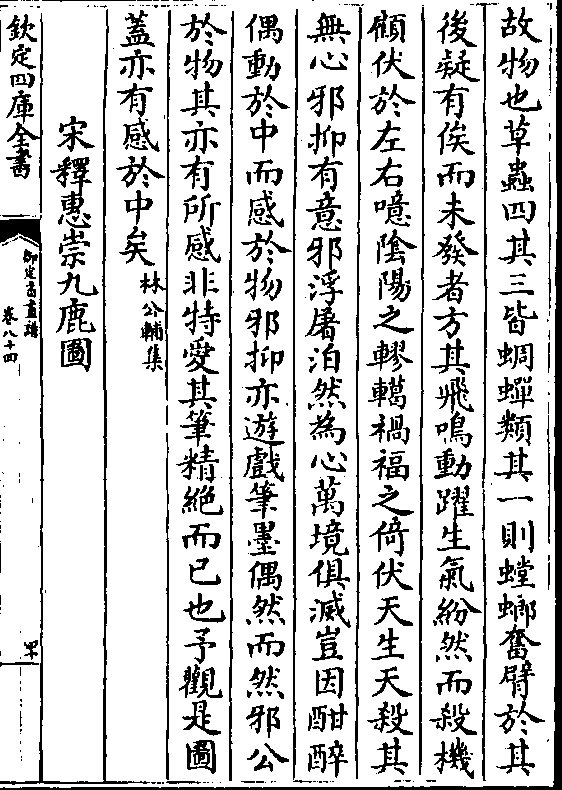 故物也草蟲四其三皆蜩蟬類其一則螳螂奮臂於其
後疑有俟而未發者方其飛鳴動躍生氣紛然而殺機
頋伏於左右噫陰陽之轇轕禍福之倚伏天生天殺其
無心邪抑有意邪浮屠泊然為心萬境俱滅豈因酣醉
偶動於中而感於物邪抑亦遊戲筆墨偶然而然邪公
於物其亦有所感非特愛其筆精絶而已也予觀是圖
蓋亦有感於中矣林公輔集
宋釋惠崇九鹿圖
欽定四庫全書
御定書畫譜
卷八十四